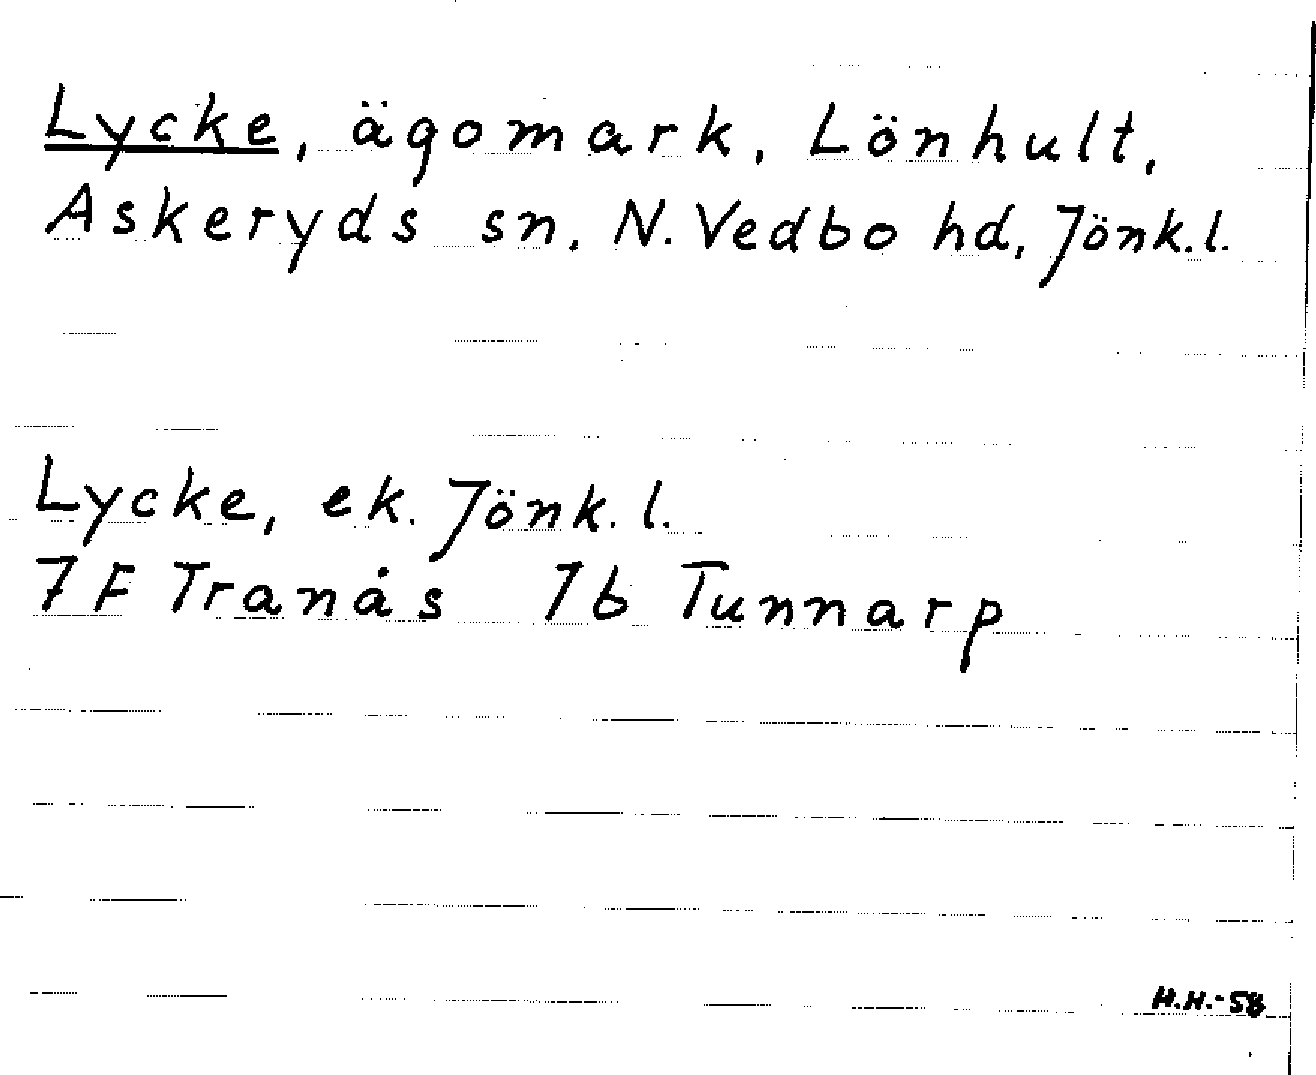 Lycke, ägomark, Lönhult,
Askeryds sn, N. Vedbo hd, Jönk.l.
Lycke, ek. Jönk. l.
7 F Tranås 7b Tunnarp
H.H.-58